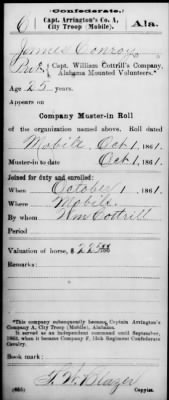 (Confederate.)
C Capt. Arrington's Co. A, City Troop (Mobile). Ala.
James Conroy
Pvt., Capt. William Cottrill's Company, Alabama Mounted Volunteers.*
Age 25 years.
Appears on
Company Muster-in Roll
of the organization named above. Roll dated
Mobile, Oct 1, 1861.
Muster-in to date Oct 1, 1861.
Joined for duty and enrolled:
When October 1, 1861.
Where Mobile.
By whom Wm Cottrill
Period
Valuation of horse, $225 00/100
Remarks:
*This company subsequently became, Captain Arrington's
Company A, City Troop (Mobile), Alabama.
It served as an independent command until September,
1862, when it became Company F, 15th Regiment Confederate
Cavalry.
Book mark:
T. W. Blazer
Copyist.